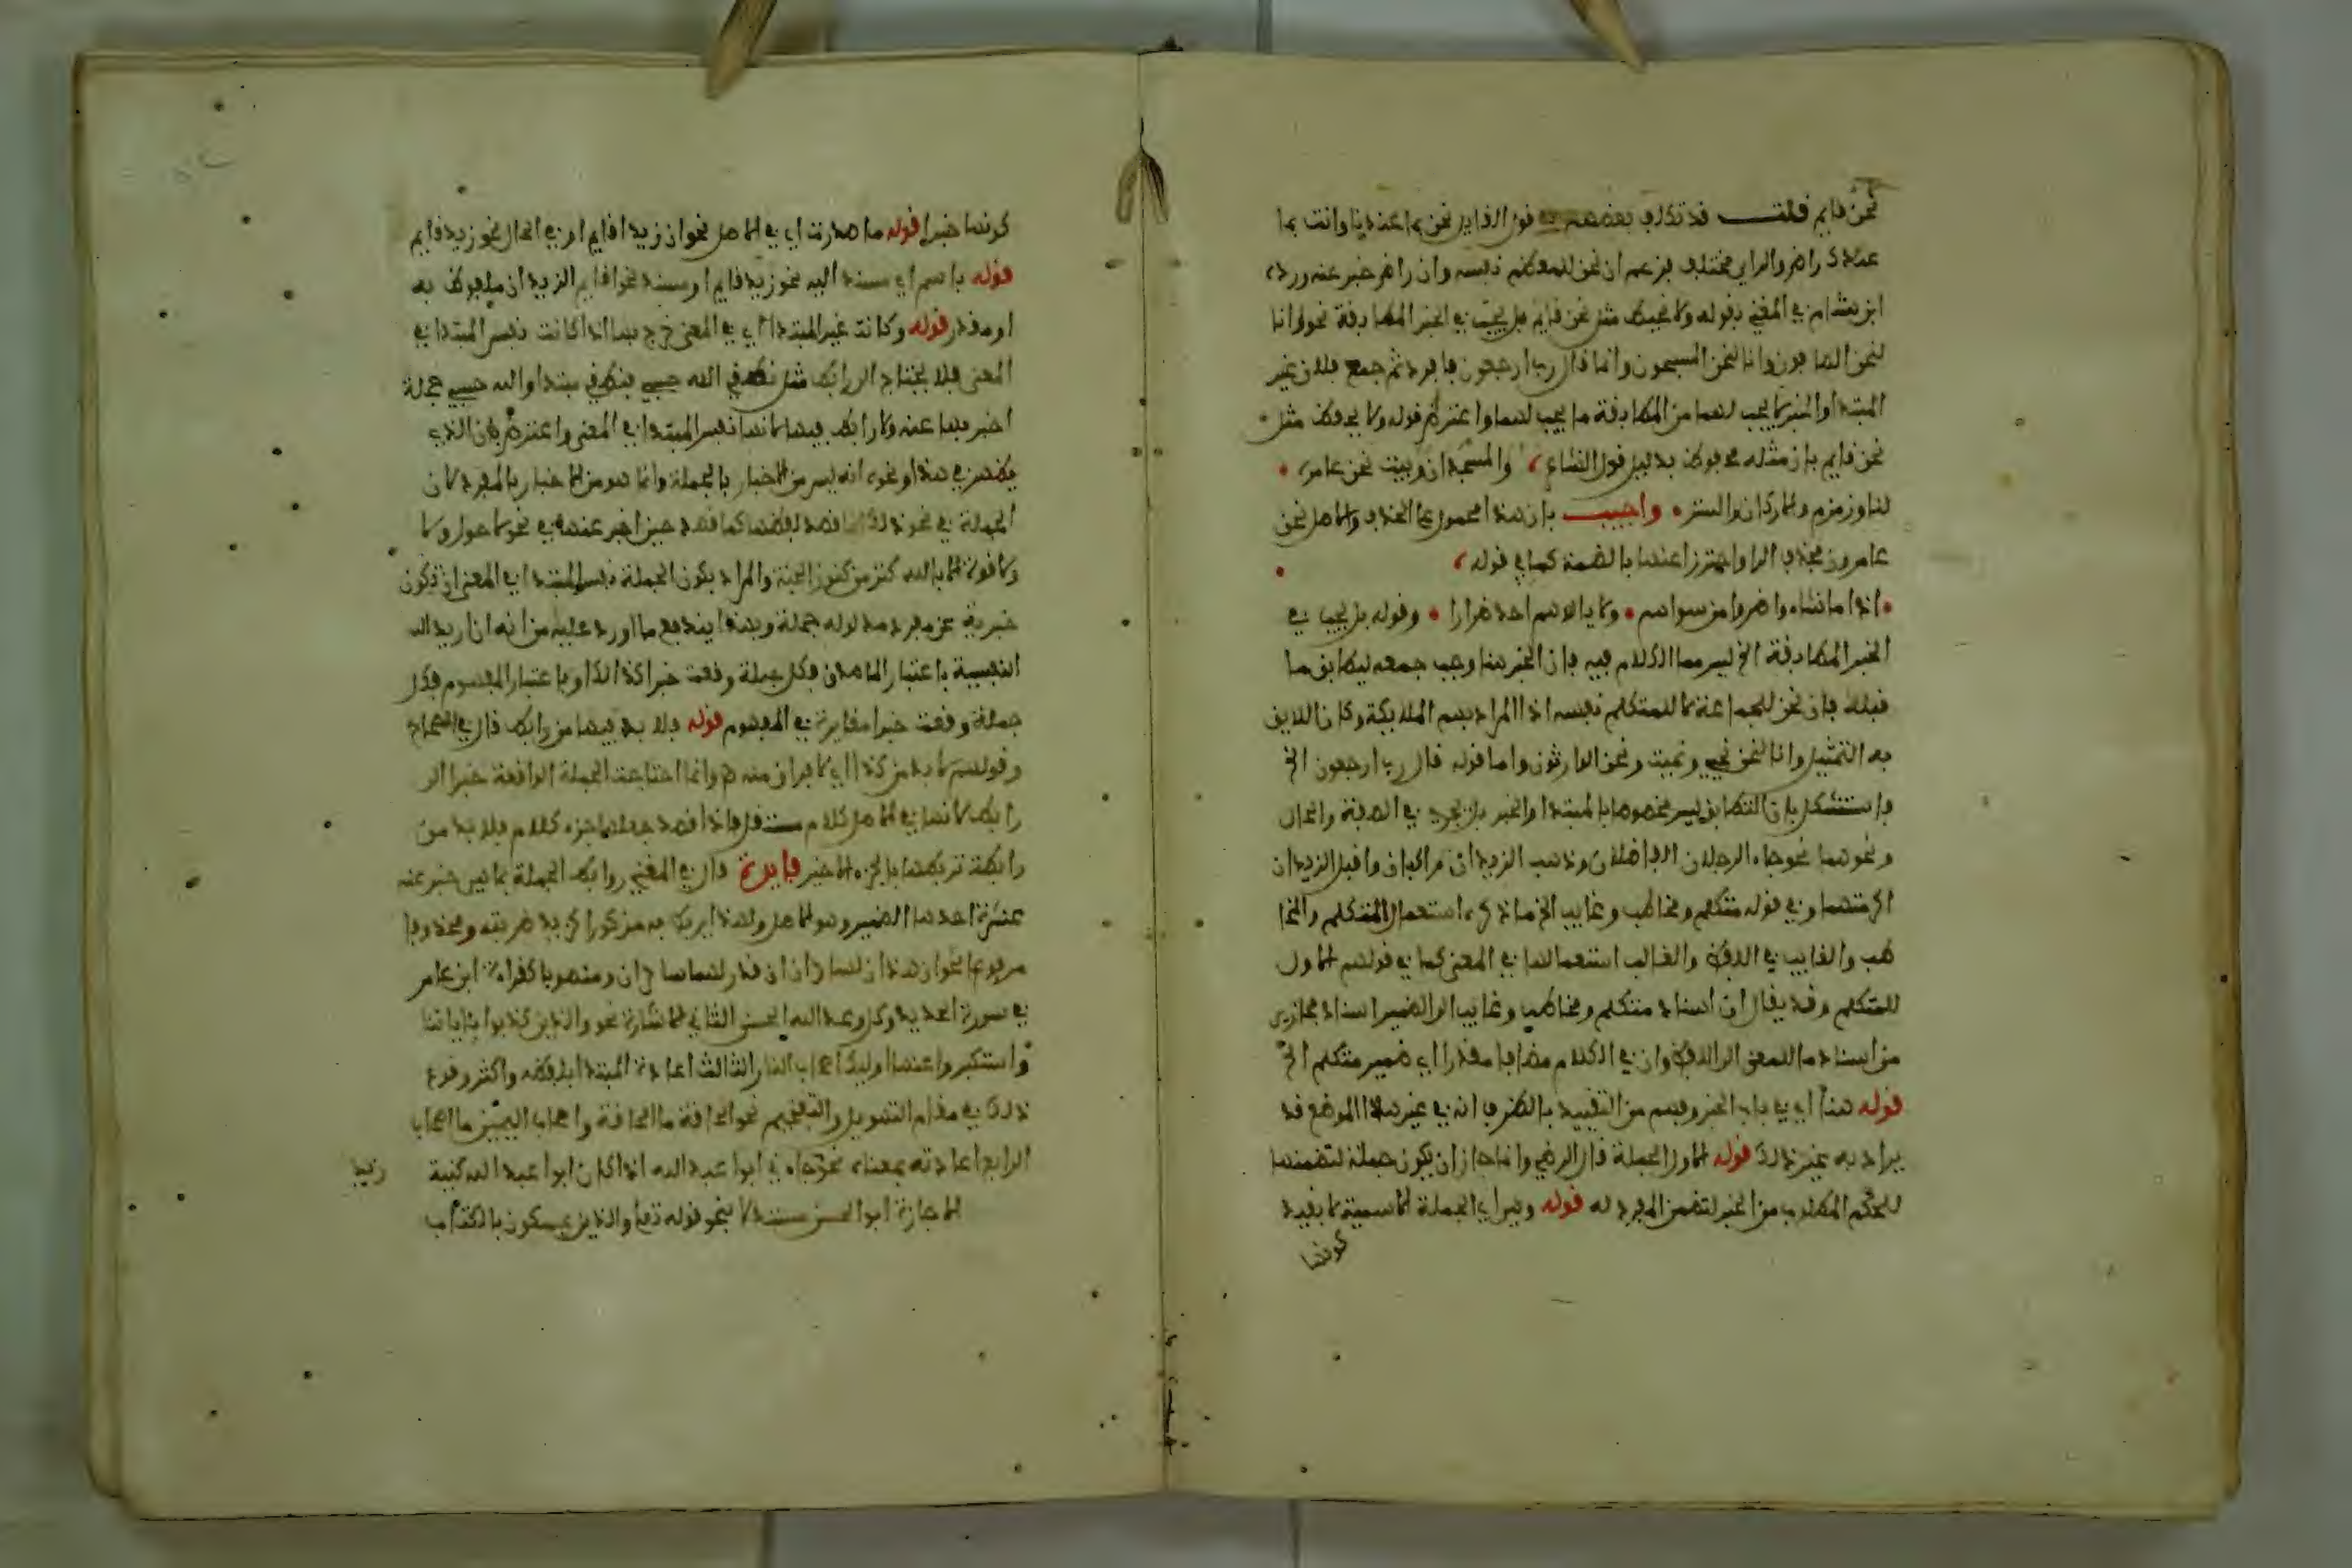 نحن قايم قلت قد تكلف بعضهم قول القايل نحن بما عندنا وانت بما
عندك راض والراي مختلف فزعم ان نحن للمعظم نفسه وان راض خبر عنه ورده
ابن هشام في المغني بقوله ولا يحفظ مثل نحن قايم بل يجب في الخبر المطابقة نحو وانا
لنحن الصافون وانا لنحن المسبحون واما قال رب ارجعون فافرد ثم جمع فلان غير
المبتدا والخبر لا يجب لهما من المطابقة ما يجب لهما واعترض قوله ولا يحفظ مثل
نحن قايم بان مثله محفوظ بدليل قول الشاعر والمسجدان وبيت نحن عامره
لنا وزمزم والاركان والستر واجيب بان هذا محمول على الحذف والاصل نحن
عامروه فحذف الواو اجتزا عنها بالضمة كما في قوله
اذا ما شاء واضروا من سواهم ولا يالوهم احد ضرارا وقوله بل يجب في
الخبر المطابقة الخ ليس مما الكلام فيه فان الخبر هنا وجب جمعه ليطابق ما
قبله فان نحن للجماعة لا للمتكلم نفسه اذ المراد بهم الملايكة وكان اللايق
به التمثيل وانا لنحن نحيي ونميت ونحن الوارثون واما قوله قال رب ارجعون الخ
فاستشكل بان التطابق ليس مخصوصا بالمبتدا والخبر بل يجري في الصفة والحال
ونحوهما نحو جاء الرجلان الفاضلان وذهب الزيدان راكبان واقبل الزيدان
اكرمتهما وفي قوله متكلم ومخاطب وغايب الخ ما ذكره استعمال المتكلم والمخا
طب والغايب في اللفظ والغالب استعمالها في المعنى كما في قولهم الاول
للمتكلم وقد يقال ان اسناد متكلم ومخاطب وغايب الى الضمير اسناد مجازي
من اسناد ما للمعنى الى اللفظ وان في الكلام مضافا مقدرا اي ضمير متكلم الخ
قوله هنا اي في باب الخبر وفهم من التقييد بالظرف انه في غير هذا الموضع قد
يراد به غير ذلك قوله الاول الجملة قال الرضي وانما جاز ان يكون جملة لتضمنها
للحكم المطلوب من الخبر لتضمن المفرد له قوله وهي اي الجملة الاسمية لا بقيد
كونها
كونها خبرا قوله ما صدرت اي في الاصل نحو ان زيدا قايم او في الحال نحو زيد قايم
قوله باسم اي مسند اليه نحو زيد قايم او مسند نحو اقايم الزيدان ملفوظ به
او مقدر قوله وكانت غير المبتدا اي في المعنى خرج بها اذا كانت نفس المبتدا في
المعنى فلا يحتاج الى رابط مثل نطقي الله حسبي فنطقي مبتدا والله حسبي جملة
اخبر بها عنه ولا رابط فيها لانها نفس المبتدا في المعنى واعترض بان الذي
يظهر في هذا ونحوه انه ليس من الاخبار بالجملة وانما هو من الاخبار بالمفرد لان
الجملة في نحو ذلك انما قصد لفظها كما قصد حين اخبر عنها في نحو لا حول ولا
ولا قوة الا بالله كنز من كنوز الجنة والمراد بكون الجملة نفس المبتدا في المعنى ان تكون
خبرية عن مفرد مدلوله جملة وبهذا يندفع ما اورد عليه من انه ان اريد الـ
النفسية باعتبار الماصدق فكل جملة وقعت خبرا كذلك او باعتبار المفهوم فكل
جملة وقعت خبرا مغايرة في المفهوم قوله فلا بد فيها من رابط قال في الصحاح
وقولهم لا بد من كذا اي لا فراق منه وانما احتاجت الجملة الواقعة خبرا الى
رابط لانها في الاصل كلام مستقل فاذا قصد جعلها جزء كلام فلا بد من
رابطة تربطها بالجزء الاخير فايدة قال في المغني روابط الجملة بما هي خبر عنه
عشرة احدها الضمير وهو الاصل ولهذا يربط به مذكورا كزيد ضربته ومحذوفا
مرفوعا نحو ان هذان لساحران ان قدر لهما ساحران ومنصوبا كقراءة ابن عامر
في سورة الحديد وكل وعد الله الحسنى الثاني الاشارة نحو والذين كذبوا باياتنا
واستكبروا عنها اوليك اصحاب النار الثالث اعادة المبتدا بلفظه واكثر وقوع
ذلك في مقام التهويل والتفخيم نحو الحاقة ما الحاقة واصحاب اليمين ما اصحاب
الرابع اعادته بمعناه نحو جاءني ابوا عبد الله اذا كان ابوا عبد الله كنية
زيد
اجازه ابوا الحسن مستدلا بنحو قوله تع والذين يمسكون بالكتاب